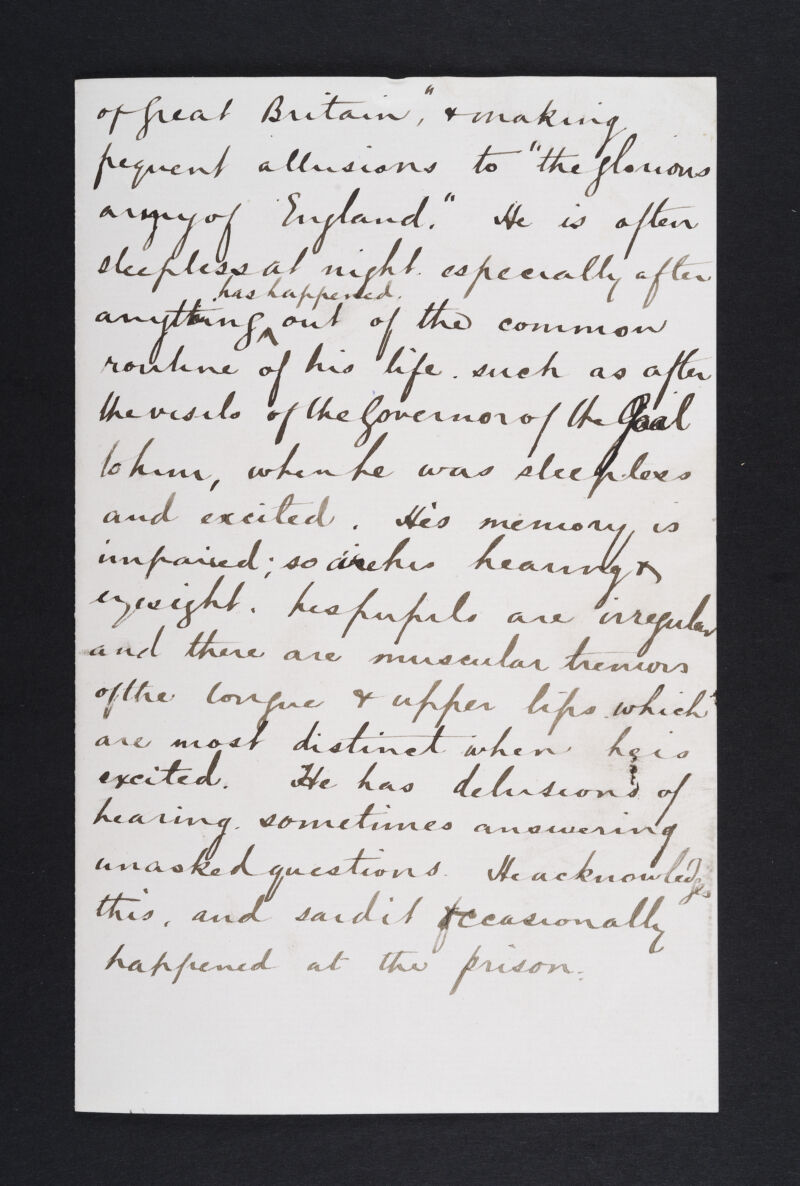 of Great Britain," & making
frequent allusions to "the glorious
army of England." He is often
sleepless at night. especially after
has happened.
anything ^ out of the common
routine of his life. such as after
the visits of the Governor of the Gaol
to him, when he was sleepless
and excited. His memory is
impaired; so is his hearing &
eyesight. his pupils are irregular
and there are muscular tremors
of the tongue & upper lips which
are most distinct when he is
excited. He has delusions of
hearing. sometimes answering
unasked questions. He acknowledges
this, and said it occasionally
happened at the prison.